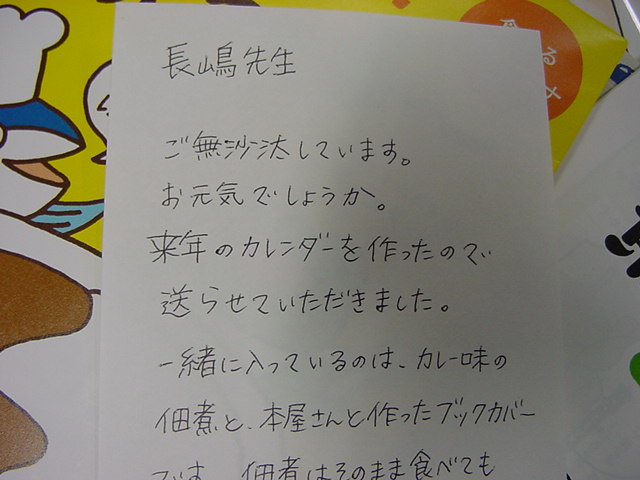 長嶋先生
ご無沙汰しています。
お元気でしょうか。
来年のカレンダーを作ったので
送らせていただきました。
一緒に入っているのは、カレー味の
佃煮と、本屋さんと作ったブックカバー
です。佃煮はそのまま食べても